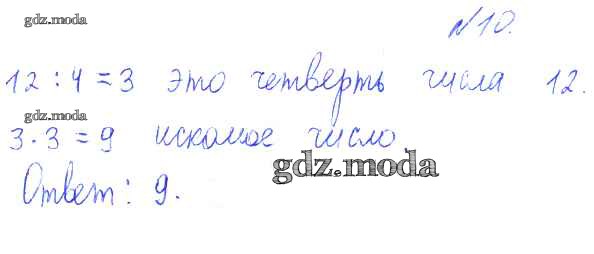 gdz.moda
№10.
12 : 4 = 3 это четверть числа 12.
gdz.moda
3 · 3 = 9 искомое число
gdz.moda
Ответ: 9.